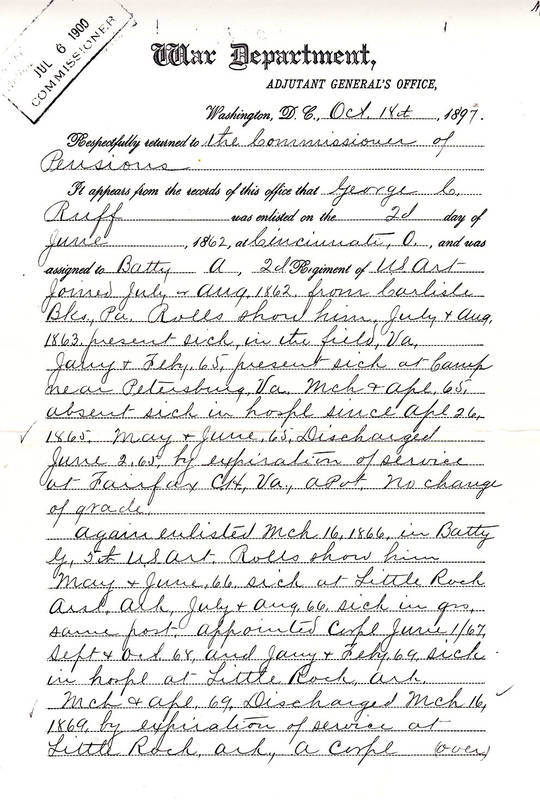 JUL 6 1900
COMMISSIONER
War Department,
ADJUTANT GENERAL'S OFFICE,
Washington, D. C., Oct. 18t, 1897.
Respectfully returned to the Commissioner of
Pensions
It appears from the records of this office that George C.
Ruff was enlisted on the 2d day of
June, 1862, at Cincinnati, O., and was
assigned to Batty A, 2d Regiment of US Art
Joined July & Aug. 1862, from Carlisle
Bks, Pa. Rolls show him, July & Aug,
1863, present sick, in the field, Va,
Jany & Feby. 65, present sick at Camp
near Petersburg, Va. Mch & Apl, 65,
absent sick in hospl since Apl 26,
1865. May & June, 65, Discharged
June 2, 65, by expiration of service
at Fairfax C.H, Va., a Pvt. No change
of grade
Again enlisted Mch 16, 1866, in Batty
G, 5th US Art. Rolls show him
May & June, 66 sick at Little Rock
Arsl. Ark, July & Aug 66, sick in qrs,
same post. Appointed Corpl June 1/67,
Sept & Oct. 68, and Jany & Feby, 69, sick
in hospl at Little Rock, Ark.
Mch & Apl, 69, Discharged Mch 16,
1869, by expiration of service at
Little Rock, Ark, a Corpl (over)